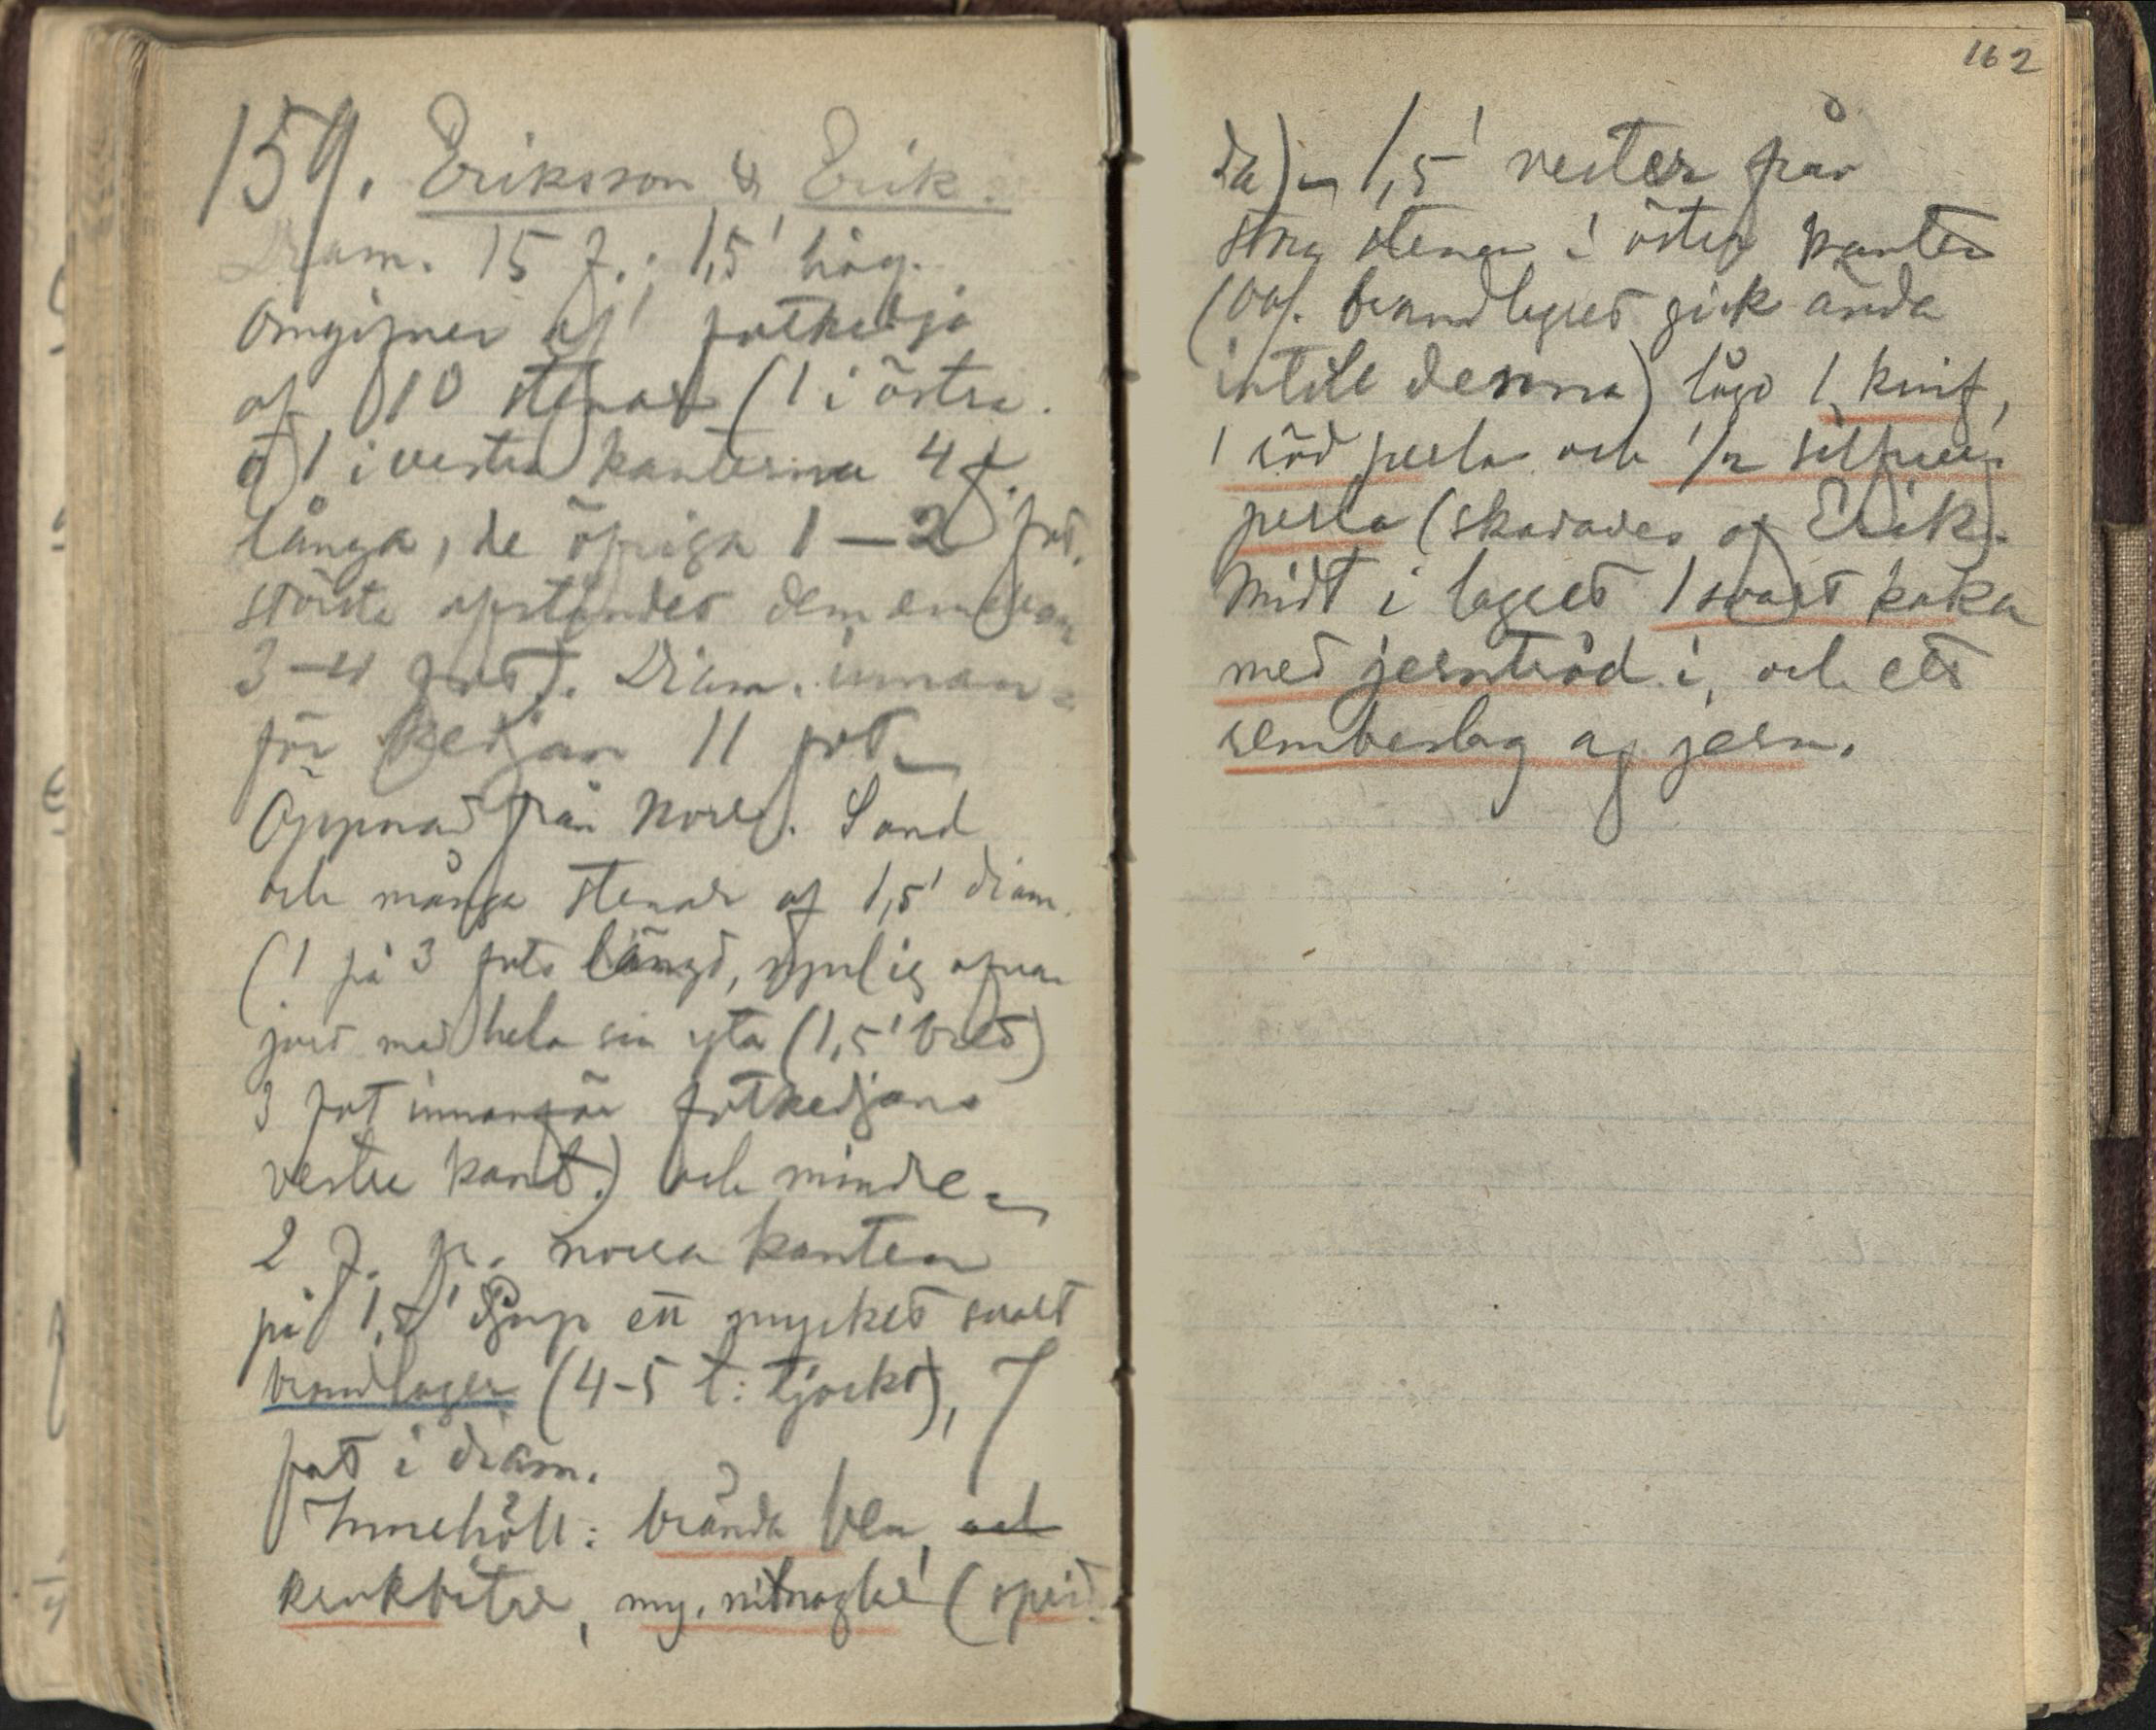 159. Eriksson & Erik.
Diam. 15 f.; 1,5' hög.
Omgifven af fotkedja
af 10 stenar (1 i östra
o 1 i vestra kanterna 4 f.
långa, de öfriga 1–2 fot.
största afståndet dem emellan
3–4 fot). Diam. innan-
för kedjan 11 fot.
Öppnad från norr. Sand
och många stenar af 1,5' diam.
(1 på 3 fots längd, synlig ofvan
jord med hela sin yta (1,5' bred)
3 fot innanför fotkedjans
vestra kant.) och mindre.
2 f. fr. norra kanten
på 1,5' djup ett mycket svart
brandlager (4-5 t: tjockt), 7
fot i diam.
Innehöll: brända ben, och
krukbitar, my. nitnaglar (sprid
162
da) 1,5' vester från
stora stenen i östra kanten
(obs. brandlagret gick ända
intill denna) lågo 1 knif,
1 röd perla och 1/2 silfver-
perla (skadades af Erik).
Midt i lagret 1 svart kaka
med jerntråd i, och ett
rembeslag af jern.